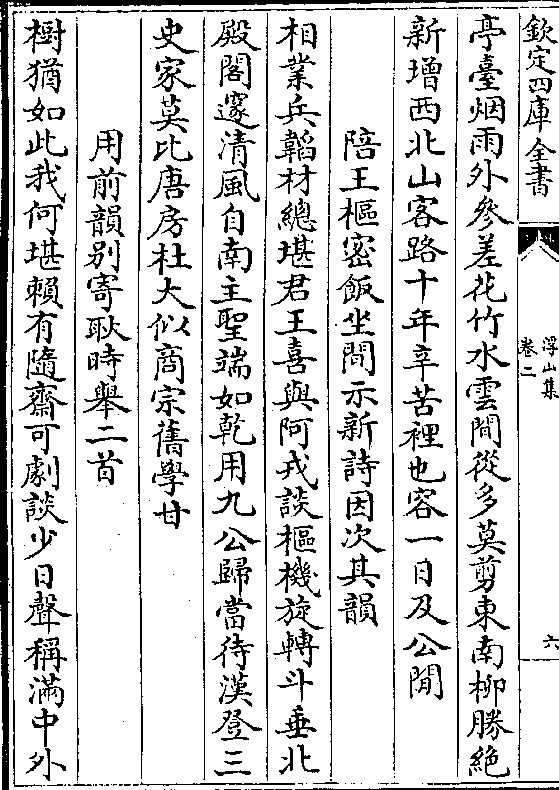 欽定四庫全書
浮山集
卷二
六
亭臺烟雨外參差花竹水雲間從多莫剪東南柳勝絶
新增西北山客路十年辛苦裡也容一日及公閒
陪王樞密飯坐間示新詩因次其韻
相業兵韜材總堪君王喜與阿戎談樞機旋轉斗垂北
殿閣邃清風自南主聖端如乾用九公歸當待漢登三
史家莫比唐房杜大似商宗舊學甘
用前韻别寄耿時舉二首
樹猶如此我何堪賴有隨齋可劇談少日聲稱滿中外